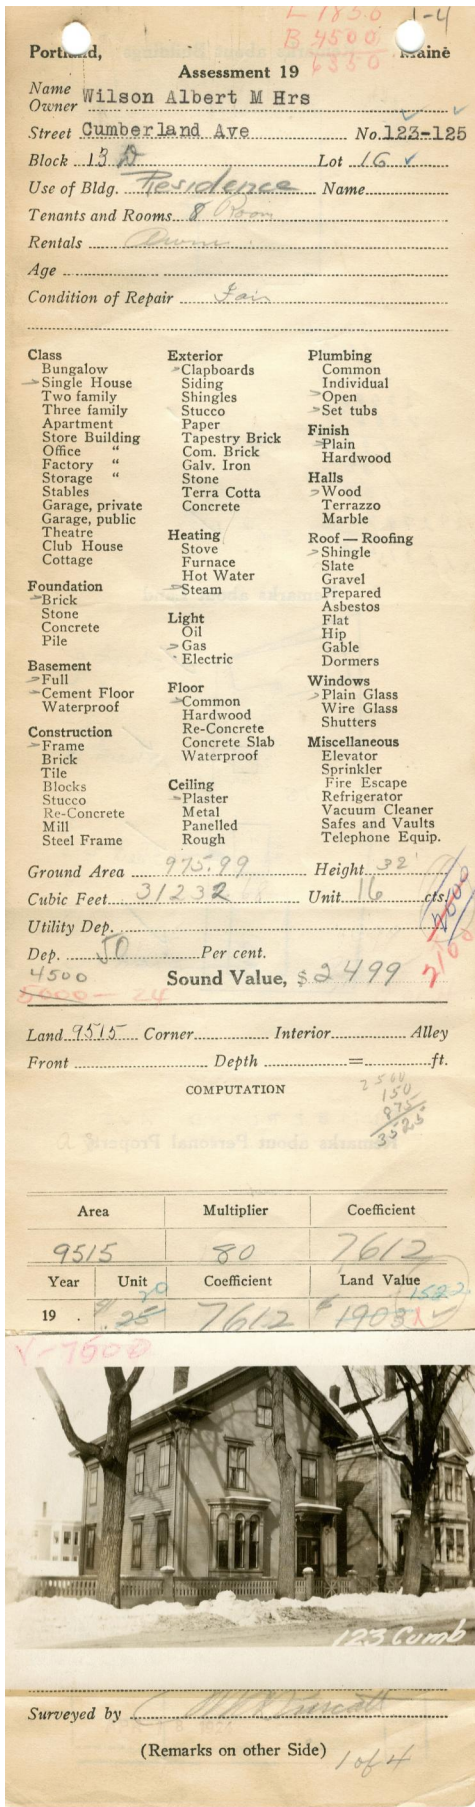 L 1850 1-4
B 4500
6350
Portland, Maine
Assessment 19
Name
Owner Wilson Albert M Hrs
Street Cumberland Ave No. 123-125
Block 13 D Lot 16
Use of Bldg. Residence Name
Tenants and Rooms 8 Room
Rentals
Age
Condition of Repair Fair
Class
Bungalow
Single House
Two family
Three family
Apartment
Store Building
Office "
Factory "
Storage "
Stables
Garage, private
Garage, public
Theatre
Club House
Cottage
Foundation
Brick
Stone
Concrete
Pile
Basement
Full
Cement Floor
Waterproof
Construction
Frame
Brick
Tile
Blocks
Stucco
Re-Concrete
Mill
Steel Frame
Exterior
Clapboards
Siding
Shingles
Stucco
Paper
Tapestry Brick
Com. Brick
Galv. Iron
Stone
Terra Cotta
Concrete
Heating
Stove
Furnace
Hot Water
Steam
Light
Oil
Gas
Electric
Floor
Common
Hardwood
Re-Concrete
Concrete Slab
Waterproof
Ceiling
Plaster
Metal
Panelled
Rough
Plumbing
Common
Individual
Open
Set tubs
Finish
Plain
Hardwood
Halls
Wood
Terrazzo
Marble
Roof — Roofing
Shingle
Slate
Gravel
Prepared
Asbestos
Flat
Hip
Gable
Dormers
Windows
Plain Glass
Wire Glass
Shutters
Miscellaneous
Elevator
Sprinkler
Fire Escape
Refrigerator
Vacuum Cleaner
Safes and Vaults
Telephone Equip.
Ground Area 975.99 Height 32'
Cubic Feet 31232 Unit 16 cts.
Utility Dep.
Dep. 50 Per cent.
4500 Sound Value, $ 2499 2100
5000 - 24
Land 9515 Corner Interior Alley
Front Depth = ft.
COMPUTATION
2500
150
875
3525
Area Multiplier Coefficient
9515 80 7612
Year Unit Coefficient Land Value
20 1522
19 . $ .25 7612 $ 1903
V-7500
123 Cumb
Surveyed by
(Remarks on other Side) 1 of 4